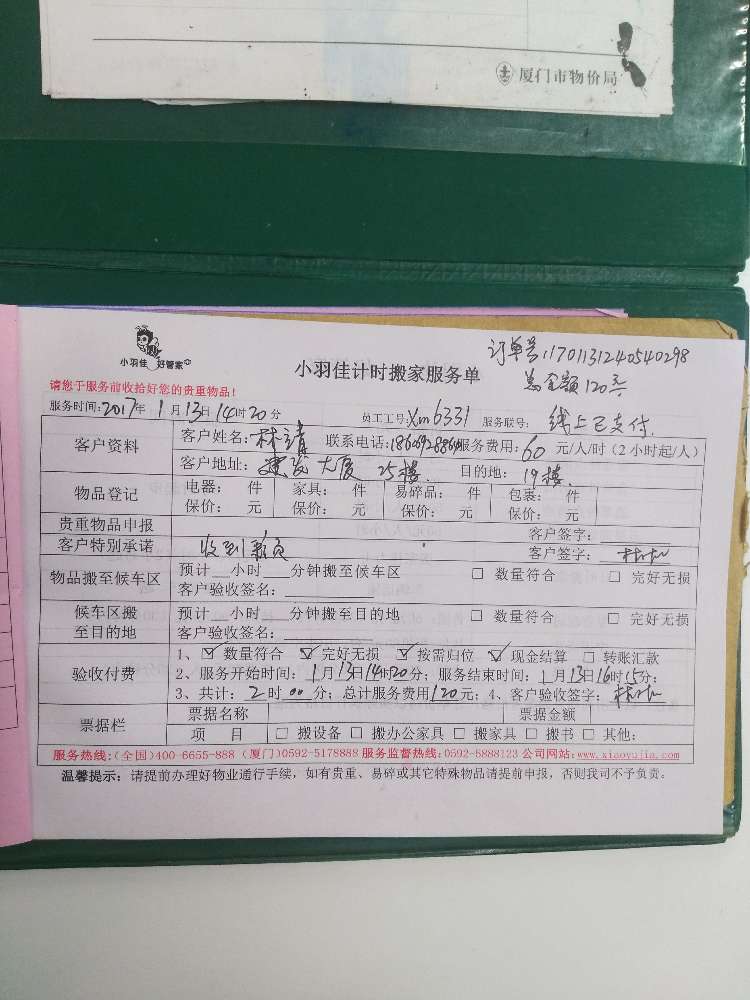 厦门市物价局
小羽佳 好管家
小羽佳计时搬家服务单
订单号:1701131240540298
总金额120元
请您于服务前收拾好您的贵重物品!
服务时间:2017年1月13日14时20分 员工工号:Xm6331 服务联号: 线上已支付.
客户资料 客户姓名:林靖 联系电话: 服务费用:60元/人/时(2小时起/人)
客户地址:建发大厦25楼. 目的地:19楼.
物品登记 电器: 件 家具: 件 易碎品: 件 包裹: 件
保价: 元 保价: 元 保价: 元 保价: 元
贵重物品申报 客户签字:
客户特别承诺 收到 客户签字:
物品搬至候车区 预计__小时___分钟搬至候车区 □ 数量符合 □ 完好无损
客户验收签名:
候车区搬至目的地 预计__小时___分钟搬至目的地 □ 数量符合 □ 完好无损
客户验收签名:
验收付费 1、☑ 数量符合 ☑ 完好无损 ☑ 按需归位 ☑ 现金结算 □ 转账汇款
2、服务开始时间:1月13日14时20分;服务结束时间:1月13日16时15分;
3、共计:2时00分;总计服务费用120元;4、客户验收签字:
票据栏 票据名称 票据金额
项 目 □ 搬设备 □ 搬办公家具 □ 搬家具 □ 搬书 □ 其他:
服务热线:(全国)400-6655-888 (厦门)0592-5178888 服务监督热线:0592-5888123 公司网站:www.xiaoyujia.com
温馨提示:请提前办理好物业通行手续,如有贵重、易碎或其它特殊物品请提前申报,否则我司不予负责。